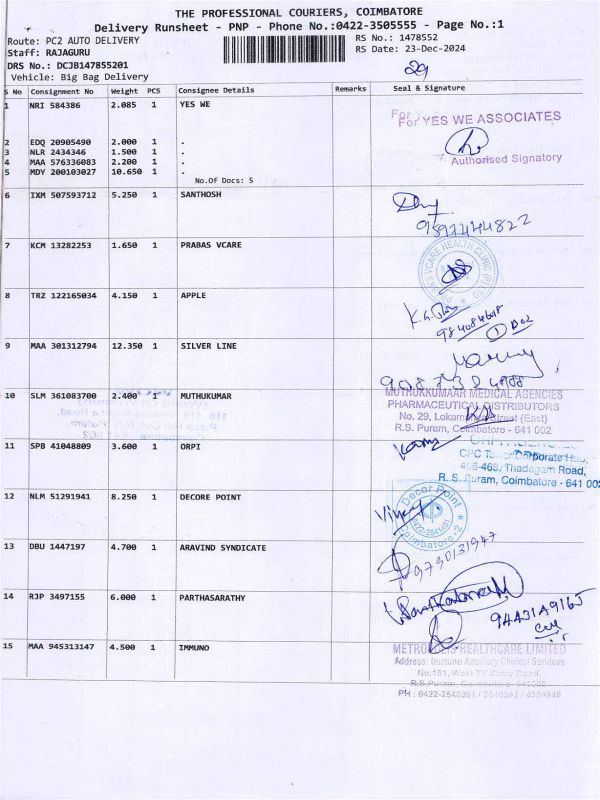 THE PROFESSIONAL COURIERS, COIMBATORE
Delivery Runsheet - PNP - Phone No.:0422-3505555 - Page No.:1
Route: PC2 AUTO DELIVERY
RS No.: 1478552
Staff: RAJAGURU
RS Date: 23-Dec-2024
DRS No.: DCJB147855201
Vehicle: Big Bag Delivery
29
S No Consignment No Weight PCS Consignee Details Remarks Seal & Signature
1 NRI 584386 2.085 1 YES WE
For YES WE ASSOCIATES
Authorised Signatory
2 EDQ 20905490 2.000 1 .
3 NLR 2434346 1.500 1 .
4 MAA 576336083 2.200 1 .
5 MDY 200103027 10.650 1 .
No.Of Docs: 5
6 IXM 507593712 5.250 1 SANTHOSH
7 KCM 13282253 1.650 1 PRABAS VCARE
VCARE HEALTH CLINIC (P) LTD
8 TRZ 122165034 4.150 1 APPLE
9 MAA 301312794 12.350 1 SILVER LINE
10 SLM 361083700 2.400 1 MUTHUKUMAR
MUTHUKKUMAAR MEDICAL AGENCIES
PHARMACEUTICAL DISTRIBUTORS
No. 29, Lokamanya Street (East)
R.S. Puram, Coimbatore - 641 002
11 SPB 41048809 3.600 1 ORPI
CPC Tower Corporate Hub,
Thadagam Road,
R.S. Puram, Coimbatore - 641 002
12 NLM 51291941 8.250 1 DECORE POINT
Decor Point
Coimbatore-2
13 DBU 1447197 4.700 1 ARAVIND SYNDICATE
9790131947
14 RJP 3497155 6.000 1 PARTHASARATHY
15 MAA 945313147 4.500 1 IMMUNO
METROPOLIS HEALTHCARE LIMITED
Address: Immuno Ancillary Clinical Services
R.S.Puram, Coimbatore - 641002